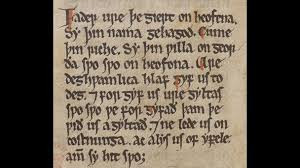 Fader ure þe giert on heofena,
Sy þin nama gehagod. Cume
þin riche. Sy þin ƿilla on eor
da sƿo sƿo on heofona. Ure
deghƿamlica hlaf gyf us to
deg. ⁊ for gyf us ure gyltas
sƿo sƿo ƿe for gyfad þam þe
ƿid us agyltad ⁊ ne led us on
costnunga. ac alys us of yfele.
am sy hit sƿo;